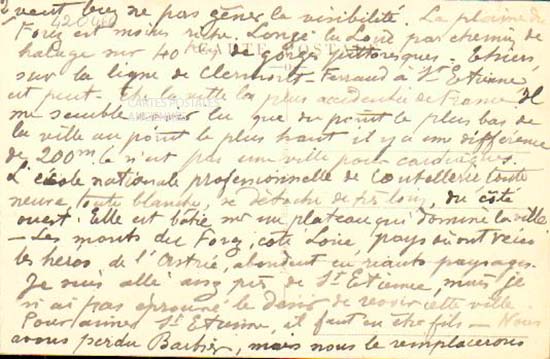 veut bien ne pas gêner la visibilité. La plaine du
Forez est moins riche. Longé la Loire par chemin de
halage sur 40 K de gorges pittoresques. Thiers
sur la ligne de Clermont-Ferrand à St Etienne
est peut-être la ville la plus accidentée de France. Il
me semble lu que du point le plus bas de
la ville au point le plus haut il y a une différence
de 200m. Ce n'est pas une ville pour cardiaques.
L'école nationale professionnelle de Coutellerie toute
neuve, toute blanche, se détache de très loin, du côté
ouest. Elle est bâtie sur un plateau qui domine la ville.
— Les monts du Forez, côté Loire, pays où ont vécu
les héros de l'Astrée, abondent en riants paysages.
Je suis allé assez près de St Etienne, mais je
n'ai pas éprouvé le désir de revoir cette ville.
Pour aimer St Etienne, il faut en être fils — Nous
avons perdu Barbier, mais nous le remplacerons
CARTE POSTALE
CARTES POSTALES